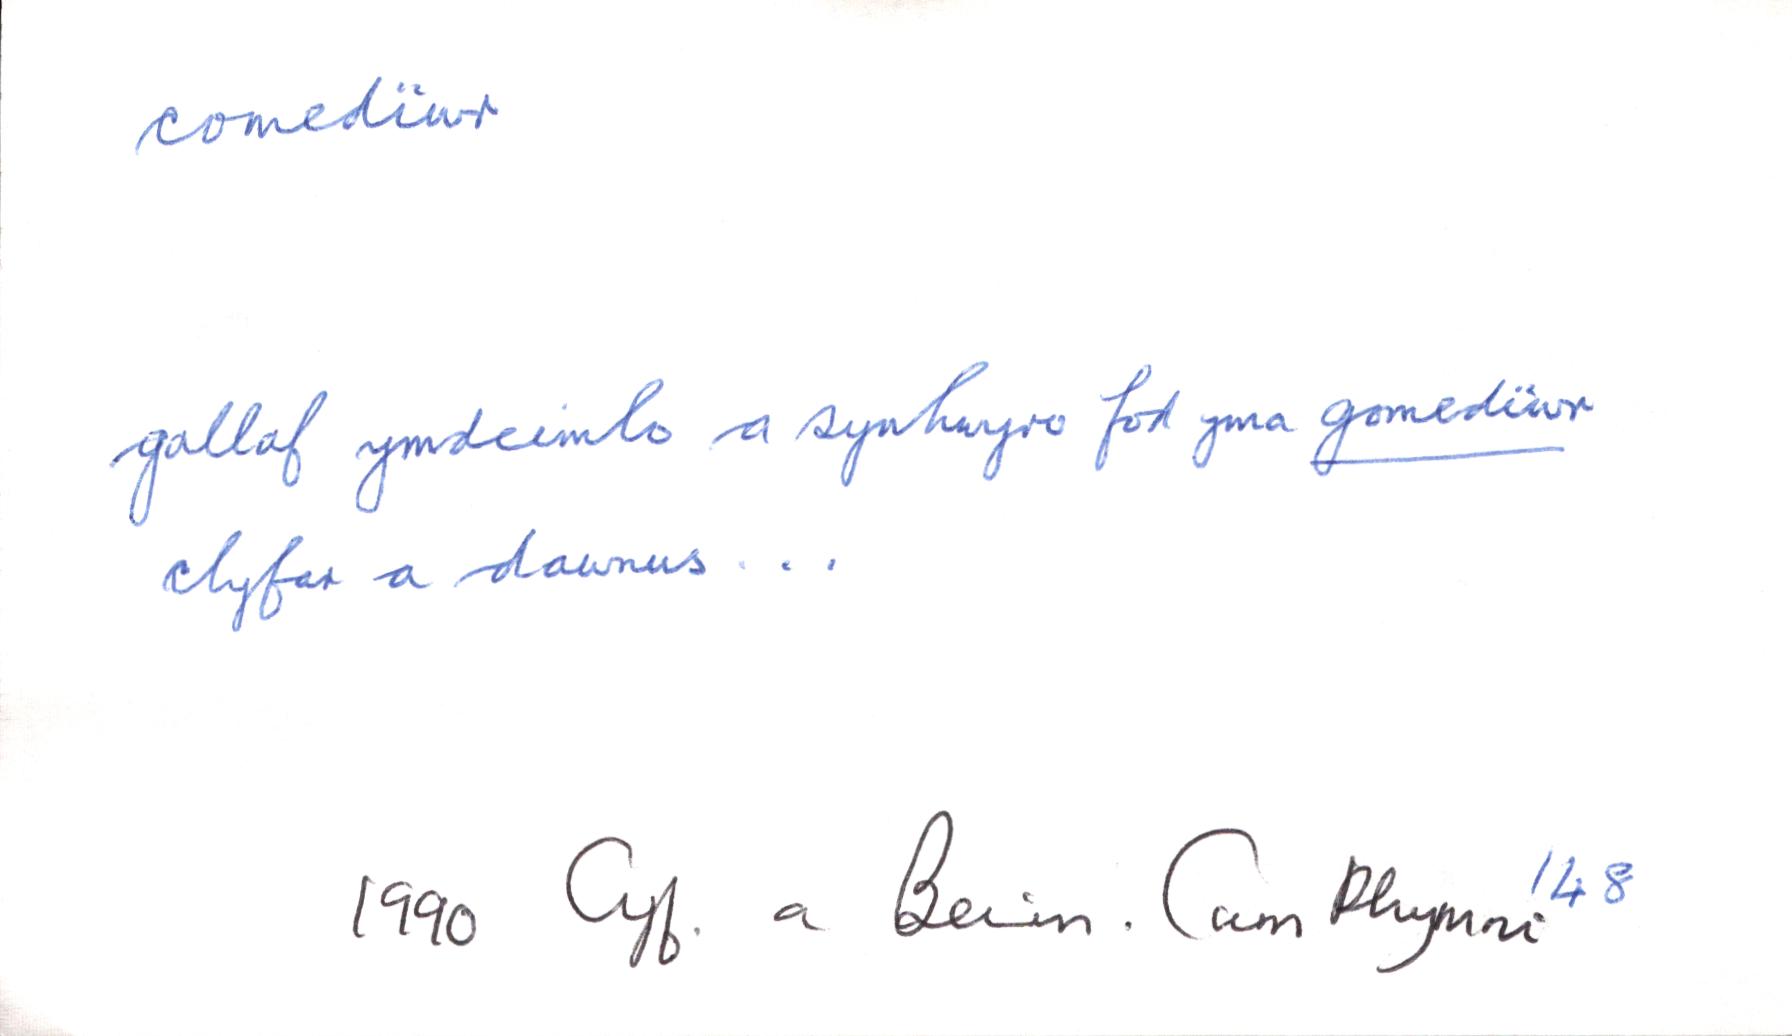 comedïwr
gallaf ymdeimlo a synhwyro fod yma gomedïwr
clyfar a dawnus . . .
1990 Cyf. a Beirn. Cwm Rhymni 148